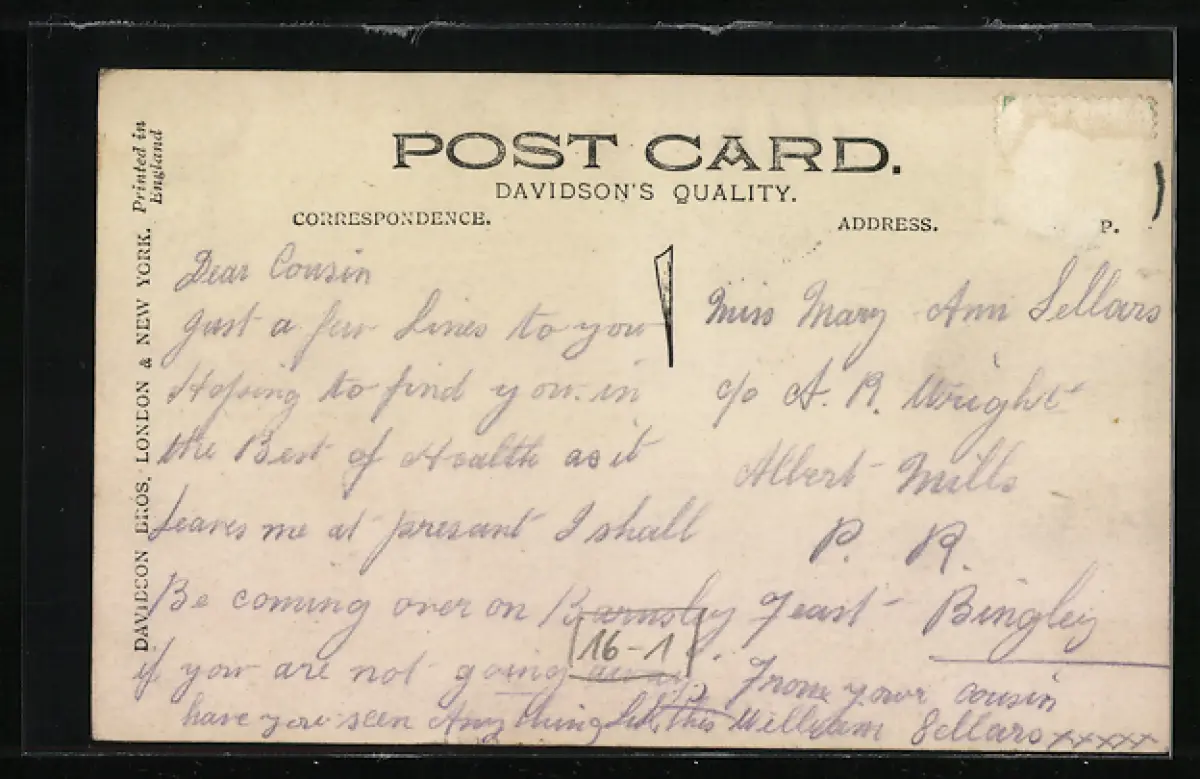 POST CARD.
DAVIDSON'S QUALITY.
CORRESPONDENCE.
ADDRESS.
P.
DAVIDSON BROS. LONDON & NEW YORK. Printed in
England
Dear Cousin
Just a few Lines to you
Hopsing to find you in
the Best of Healtth as it
Leaves me at presant I shall
Be coming over on Barnsley Feast
if you are not going away
have you seen Any thing like this
From your cousin
William Sellars xxxxx
16-1
Miss Mary Ann Sellars
c/o A. R. Wright
Albert Mills
P. R.
Bingley